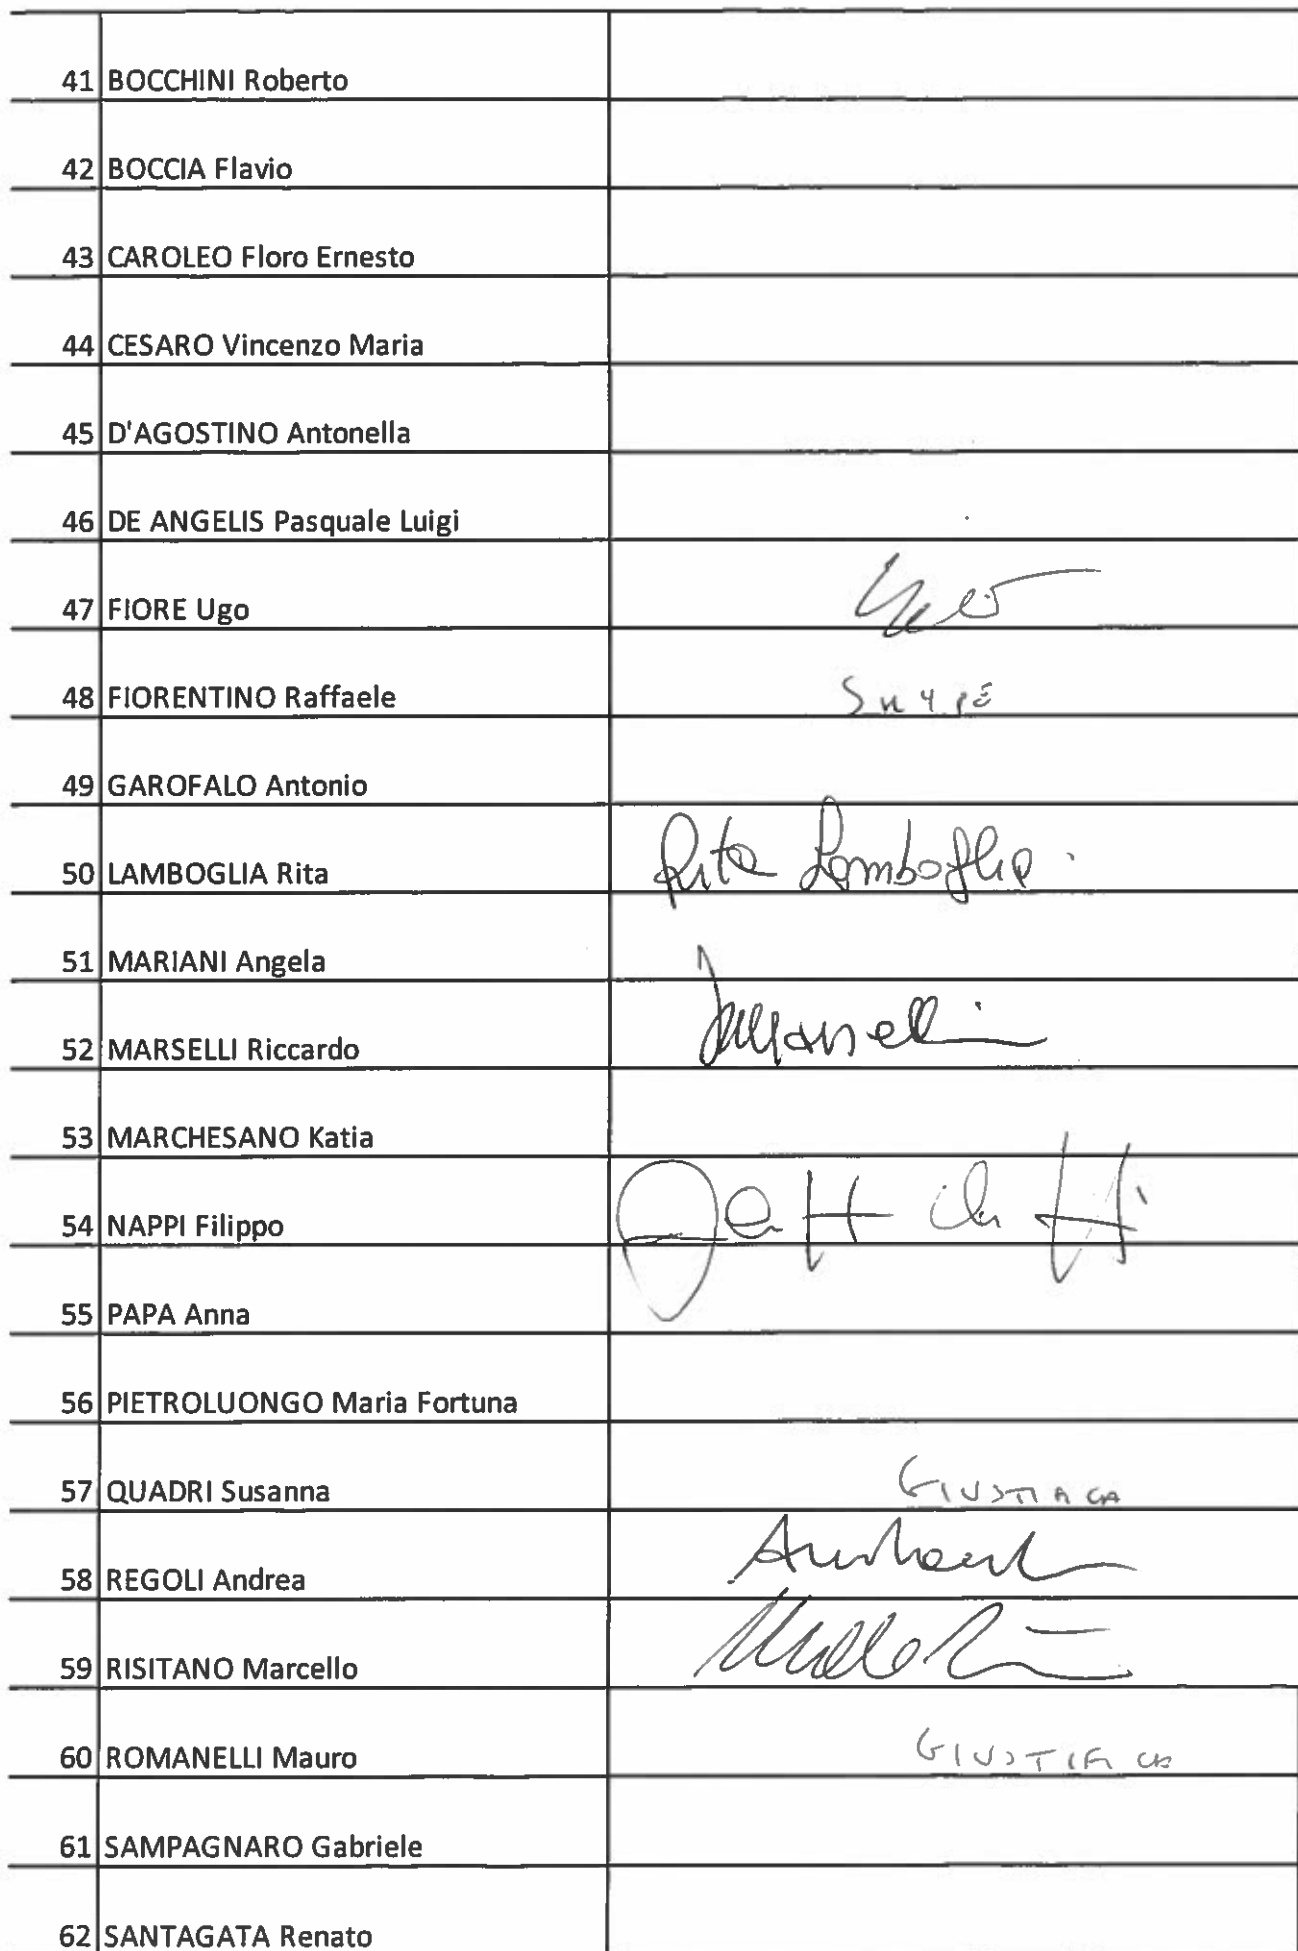 41 BOCCHINI Roberto
42 BOCCIA Flavio
43 CAROLEO Floro Ernesto
44 CESARO Vincenzo Maria
45 D'AGOSTINO Antonella
46 DE ANGELIS Pasquale Luigi
47 FIORE Ugo
48 FIORENTINO Raffaele
49 GAROFALO Antonio
50 LAMBOGLIA Rita Rita Lamboglia
51 MARIANI Angela
52 MARSELLI Riccardo Marselli
53 MARCHESANO Katia
54 NAPPI Filippo
55 PAPA Anna
56 PIETROLUONGO Maria Fortuna
57 QUADRI Susanna GIUSTIFICA
58 REGOLI Andrea
59 RISITANO Marcello
60 ROMANELLI Mauro GIUSTIFICA
61 SAMPAGNARO Gabriele
62 SANTAGATA Renato